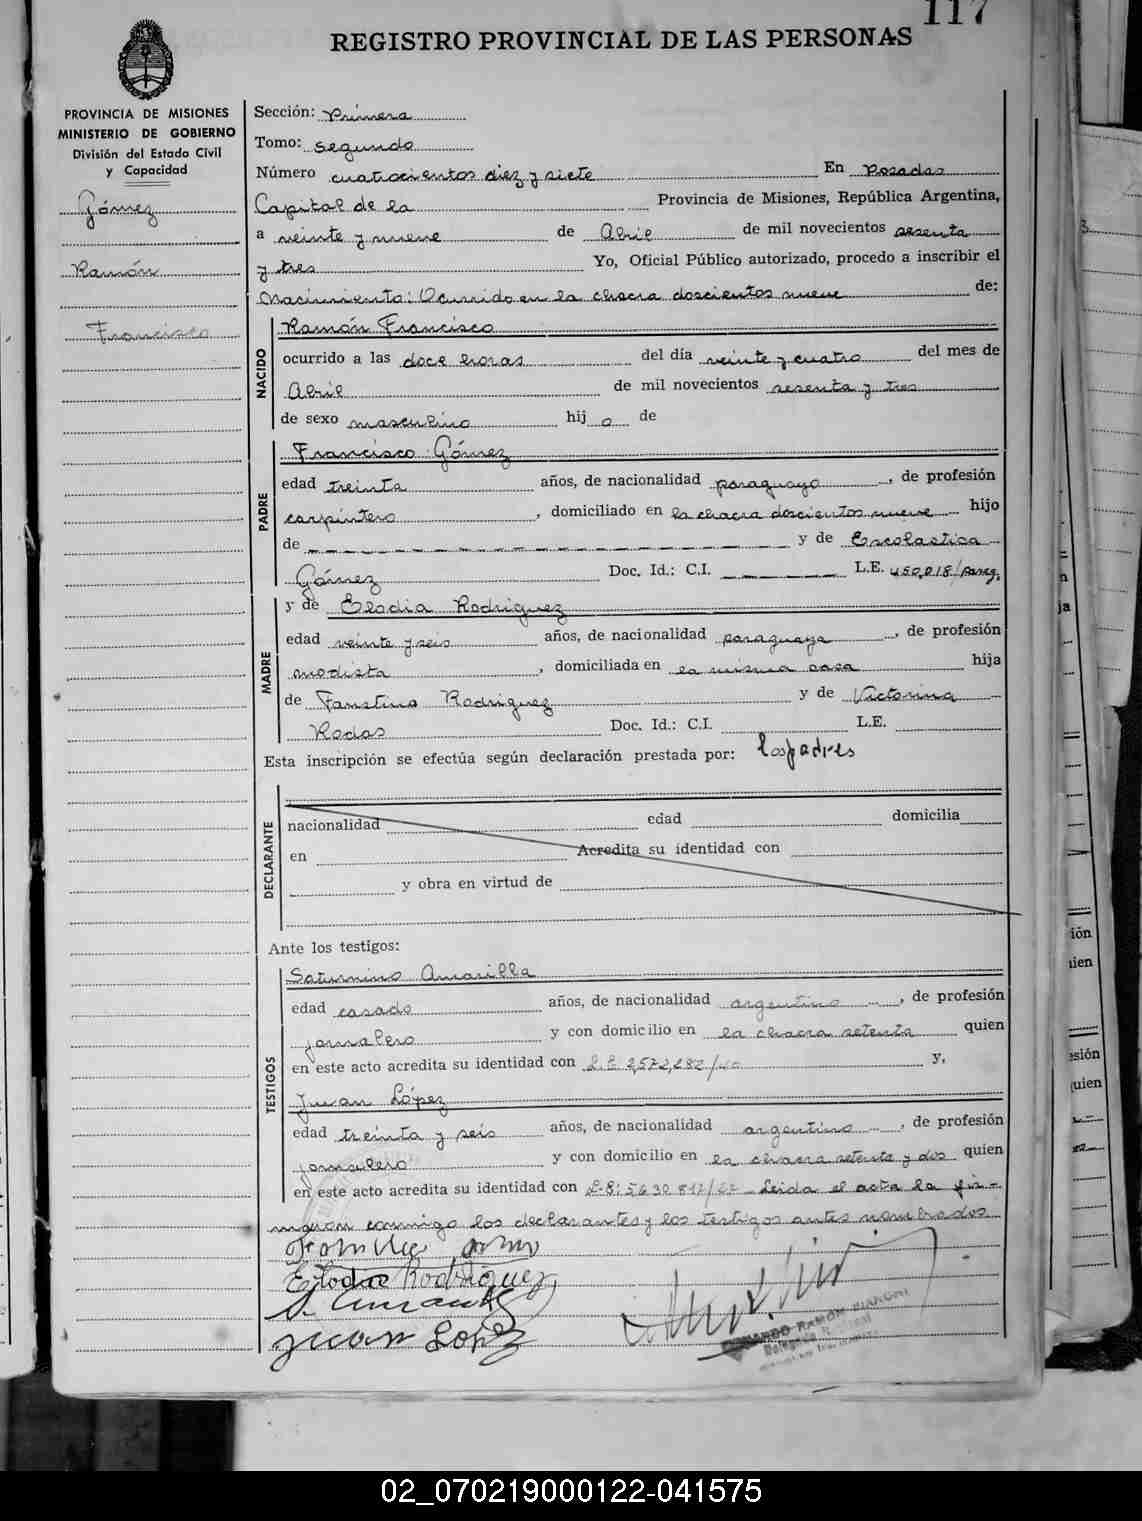 117
REGISTRO PROVINCIAL DE LAS PERSONAS
PROVINCIA DE MISIONES
MINISTERIO DE GOBIERNO
División del Estado Civil
y Capacidad
Gómez
Ramón
Francisco
Sección: Primera
Tomo: Segundo
Número cuatrocientos diez y siete En Posadas
Capital de la Provincia de Misiones, República Argentina,
a veinte y nueve de Abril de mil novecientos sesenta
y tres Yo, Oficial Público autorizado, procedo a inscribir el
Nacimiento: Ocurrido en la chacra doscientos nueve de:
NACIDO
Ramón Francisco
ocurrido a las doce horas del día veinte y cuatro del mes de
Abril de mil novecientos sesenta y tres
de sexo masculino hij o de
PADRE
Francisco Gómez
edad treinta años, de nacionalidad paraguayo, de profesión
carpintero, domiciliado en la chacra doscientos nueve hijo
de y de Escolastica
Gómez Doc. Id.: C.I. L.E. 450.018/parag.
MADRE
y de Elodia Rodriguez
edad veinte y seis años, de nacionalidad paraguaya, de profesión
modista, domiciliada en la misma casa hija
de Faustino Rodriguez y de Victorina
Rodas Doc. Id.: C.I. L.E.
Esta inscripción se efectúa según declaración prestada por: los padres
DECLARANTE
nacionalidad edad domicilia
en Acredita su identidad con
y obra en virtud de
Ante los testigos:
TESTIGOS
Saturnino Amarilla
edad casado años, de nacionalidad argentino, de profesión
jornalero y con domicilio en la chacra setenta quien
en este acto acredita su identidad con L.E. 2,572,282/ y,
Juan López
edad treinta y seis años, de nacionalidad argentino, de profesión
jornalero y con domicilio en la chacra setenta y dos quien
en este acto acredita su identidad con Leida el acta la fir-
maron conmigo los declarantes y los testigos antes nombrados
Elodia Rodriguez
Juan Lopez
RAMÓN BIANCHI
02_070219000122-041575